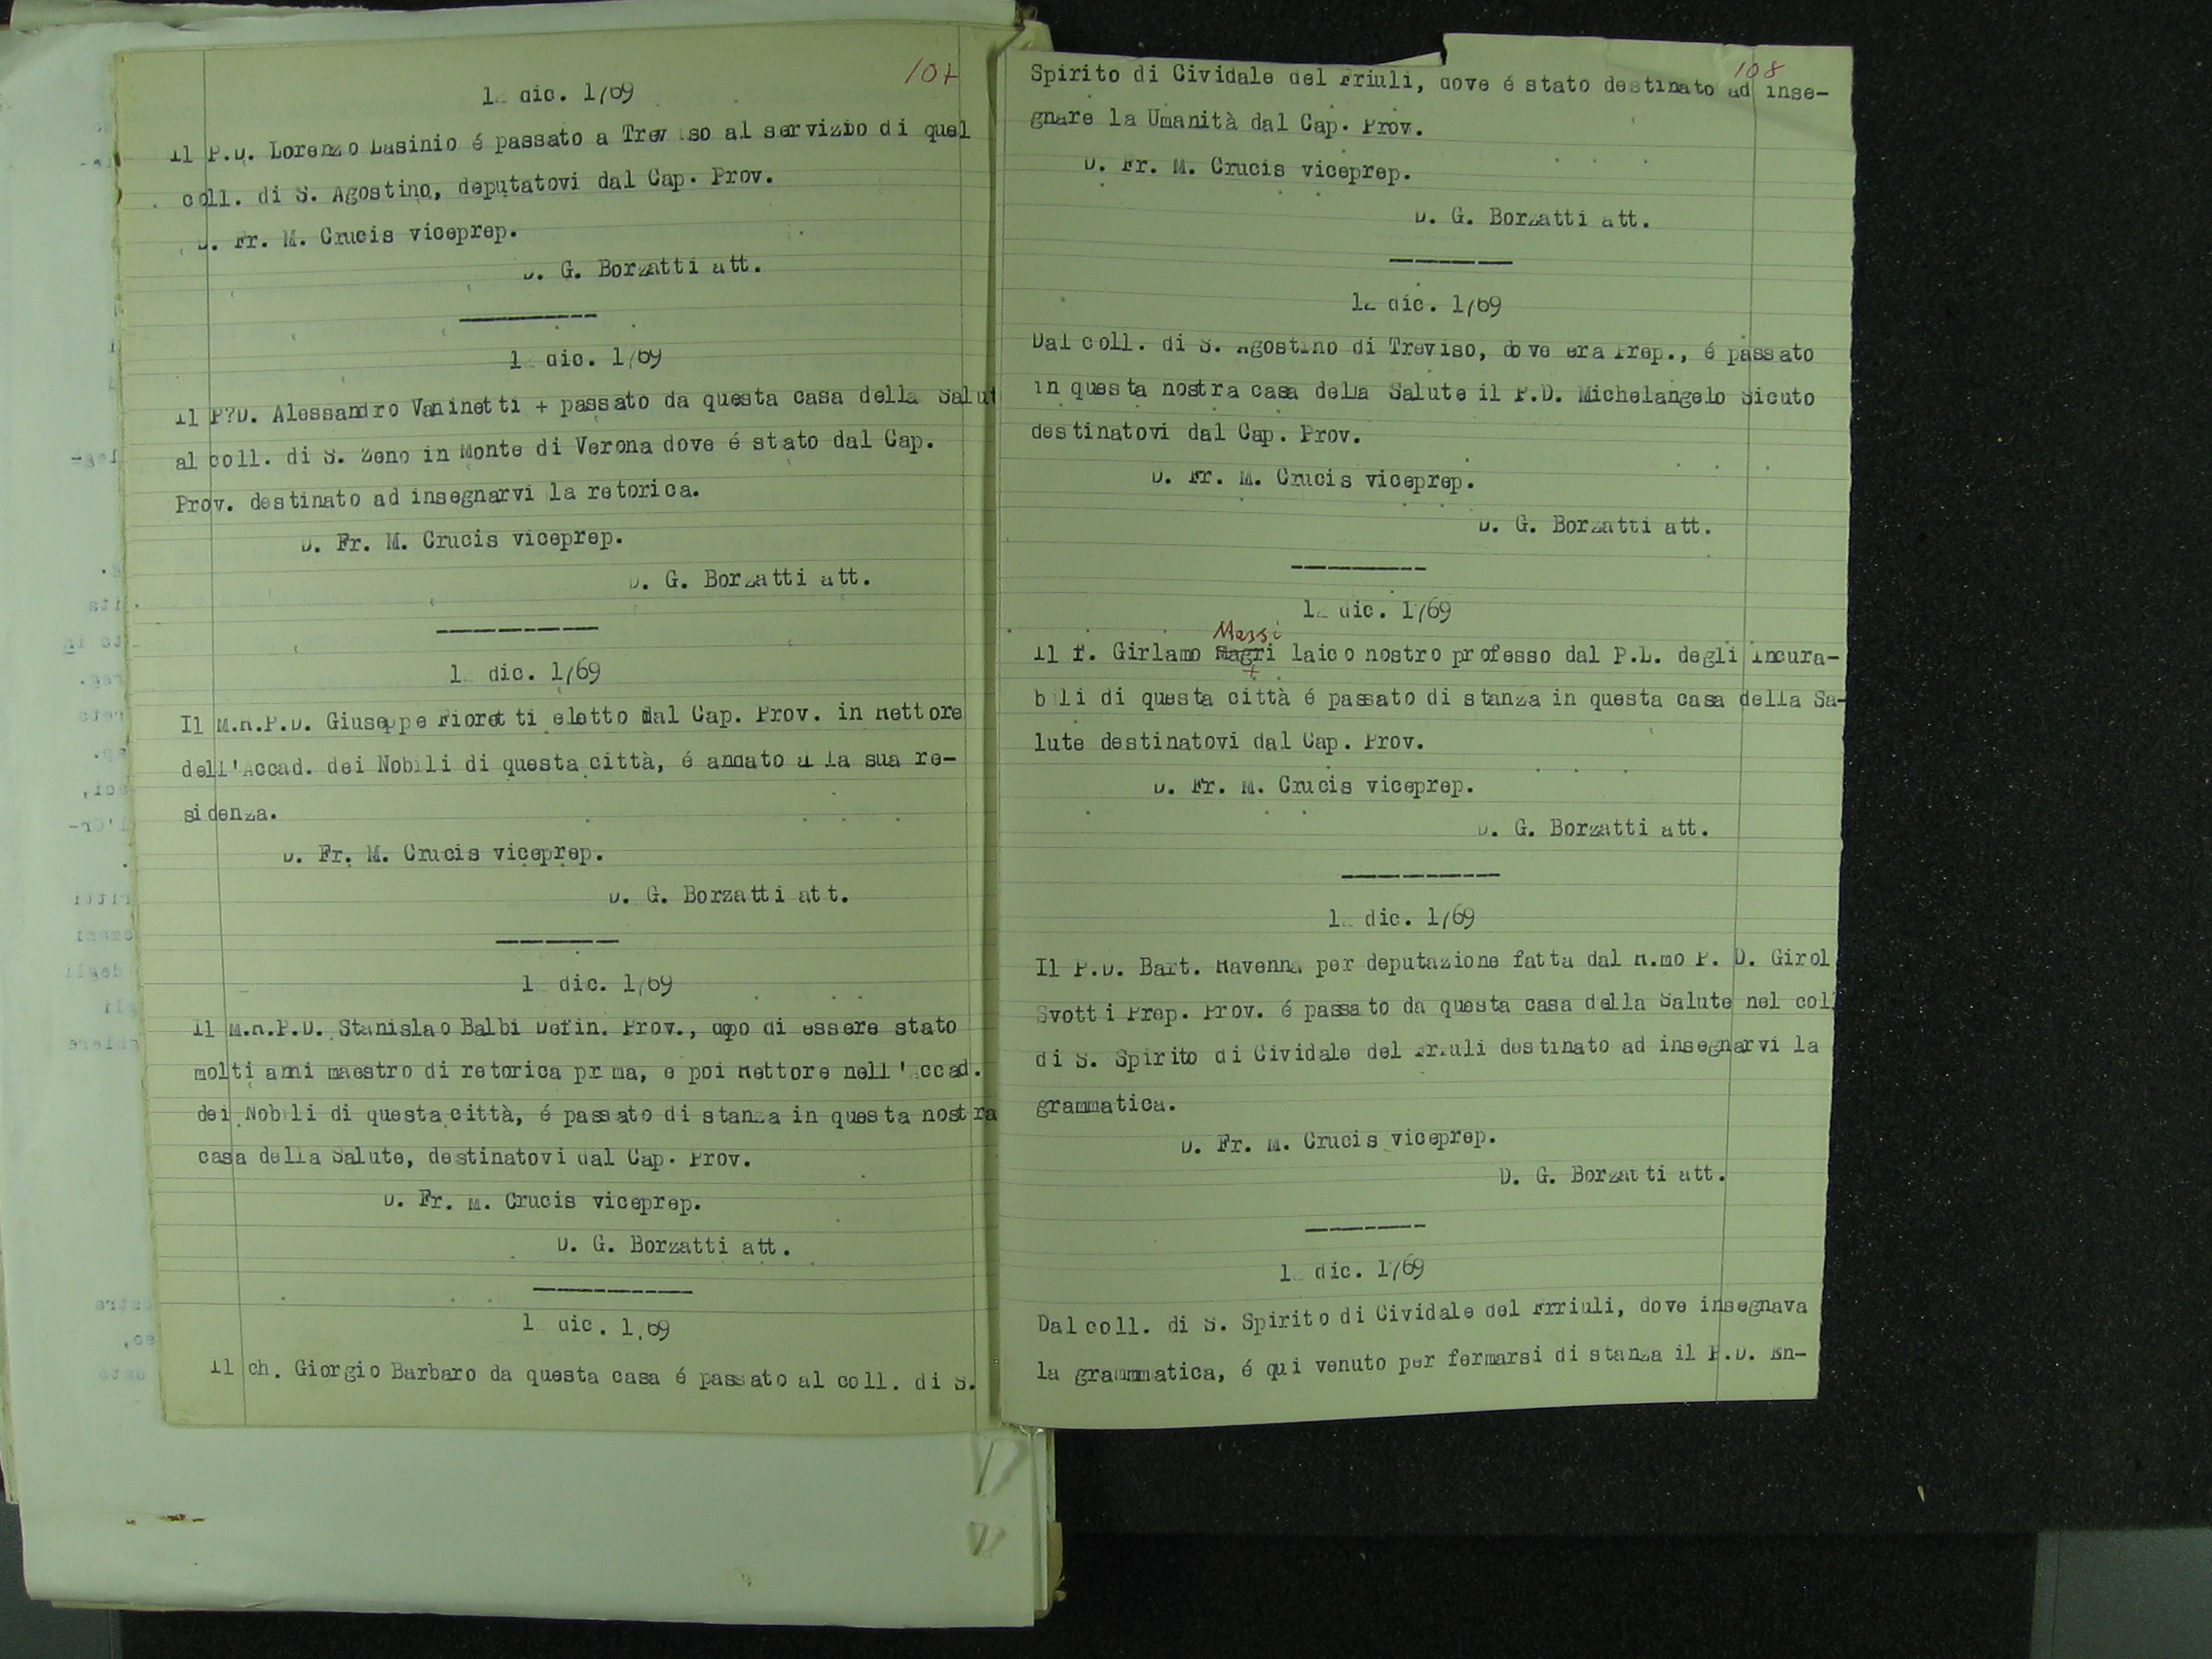 107
12 dic. 1769
Il P.D. Lorenzo Lasinio é passato a Treviso al servizio di quel
coll. di S. Agostino, deputatovi dal Cap. Prov.
D. Fr. M. Crucis viceprep.
D. G. Borzatti att.
12 dic. 1769
Il P?D. Alessandro Vaninetti + passato da questa casa della Salut
al coll. di S. Zeno in Monte di Verona dove é stato dal Cap.
Prov. destinato ad insegnarvi la retorica.
D. Fr. M. Crucis viceprep.
D. G. Borzatti att.
12 dic. 1769
Il M.R.P.D. Giuseppe Fioretti eletto dal Cap. Prov. in Rettore
dell'Accad. dei Nobili di questa città, é andato a la sua re-
sidenza.
D. Fr. M. Crucis viceprep.
D. G. Borzatti att.
12 dic. 1769
Il M.R.P.D. Stanislao Balbi Defin. Prov., dopo di essere stato
molti anni maestro di retorica prima, e poi Rettore nell'Accad.
dei Nobili di questa città, é passato di stanza in questa nostra
casa della Salute, destinatovi dal Cap. Prov.
D. Fr. M. Crucis viceprep.
D. G. Borzatti att.
12 dic. 1769
Il ch. Giorgio Barbaro da questa casa é passato al coll. di S.
108
Spirito di Cividale del Friuli, dove é stato destinato ad inse-
gnare la Umanità dal Cap. Prov.
D. Fr. M. Crucis viceprep.
D. G. Borzatti att.
12 dic. 1769
Dal coll. di S. Agostino di Treviso, dove era Prep., é passato
in questa nostra casa della Salute il P.D. Michelangelo Sicuto
destinatovi dal Cap. Prov.
D. Fr. M. Crucis viceprep.
D. G. Borzatti att.
12 dic. 1769
Massi
Il f. Girlamo Magri laico nostro professo dal P.L. degli Incura-
bili di questa città é passato di stanza in questa casa della Sa-
lute destinatovi dal Cap. Prov.
D. Fr. M. Crucis viceprep.
D. G. Borzatti att.
12 dic. 1769
Il P.D. Bart. Ravenna per deputazione fatta dal R.mo P. D. Girol
Svotti Prep. Prov. é passato da questa casa della Salute nel coll
di S. Spirito di Cividale del Friuli destinato ad insegnarvi la
grammatica.
D. Fr. M. Crucis viceprep.
D. G. Borzatti att.
12 dic. 1769
Dal coll. di S. Spirito di Cividale del Frriuli, dove insegnava
la grammmatica, é qui venuto per fermarsi di stanza il P.D. En-